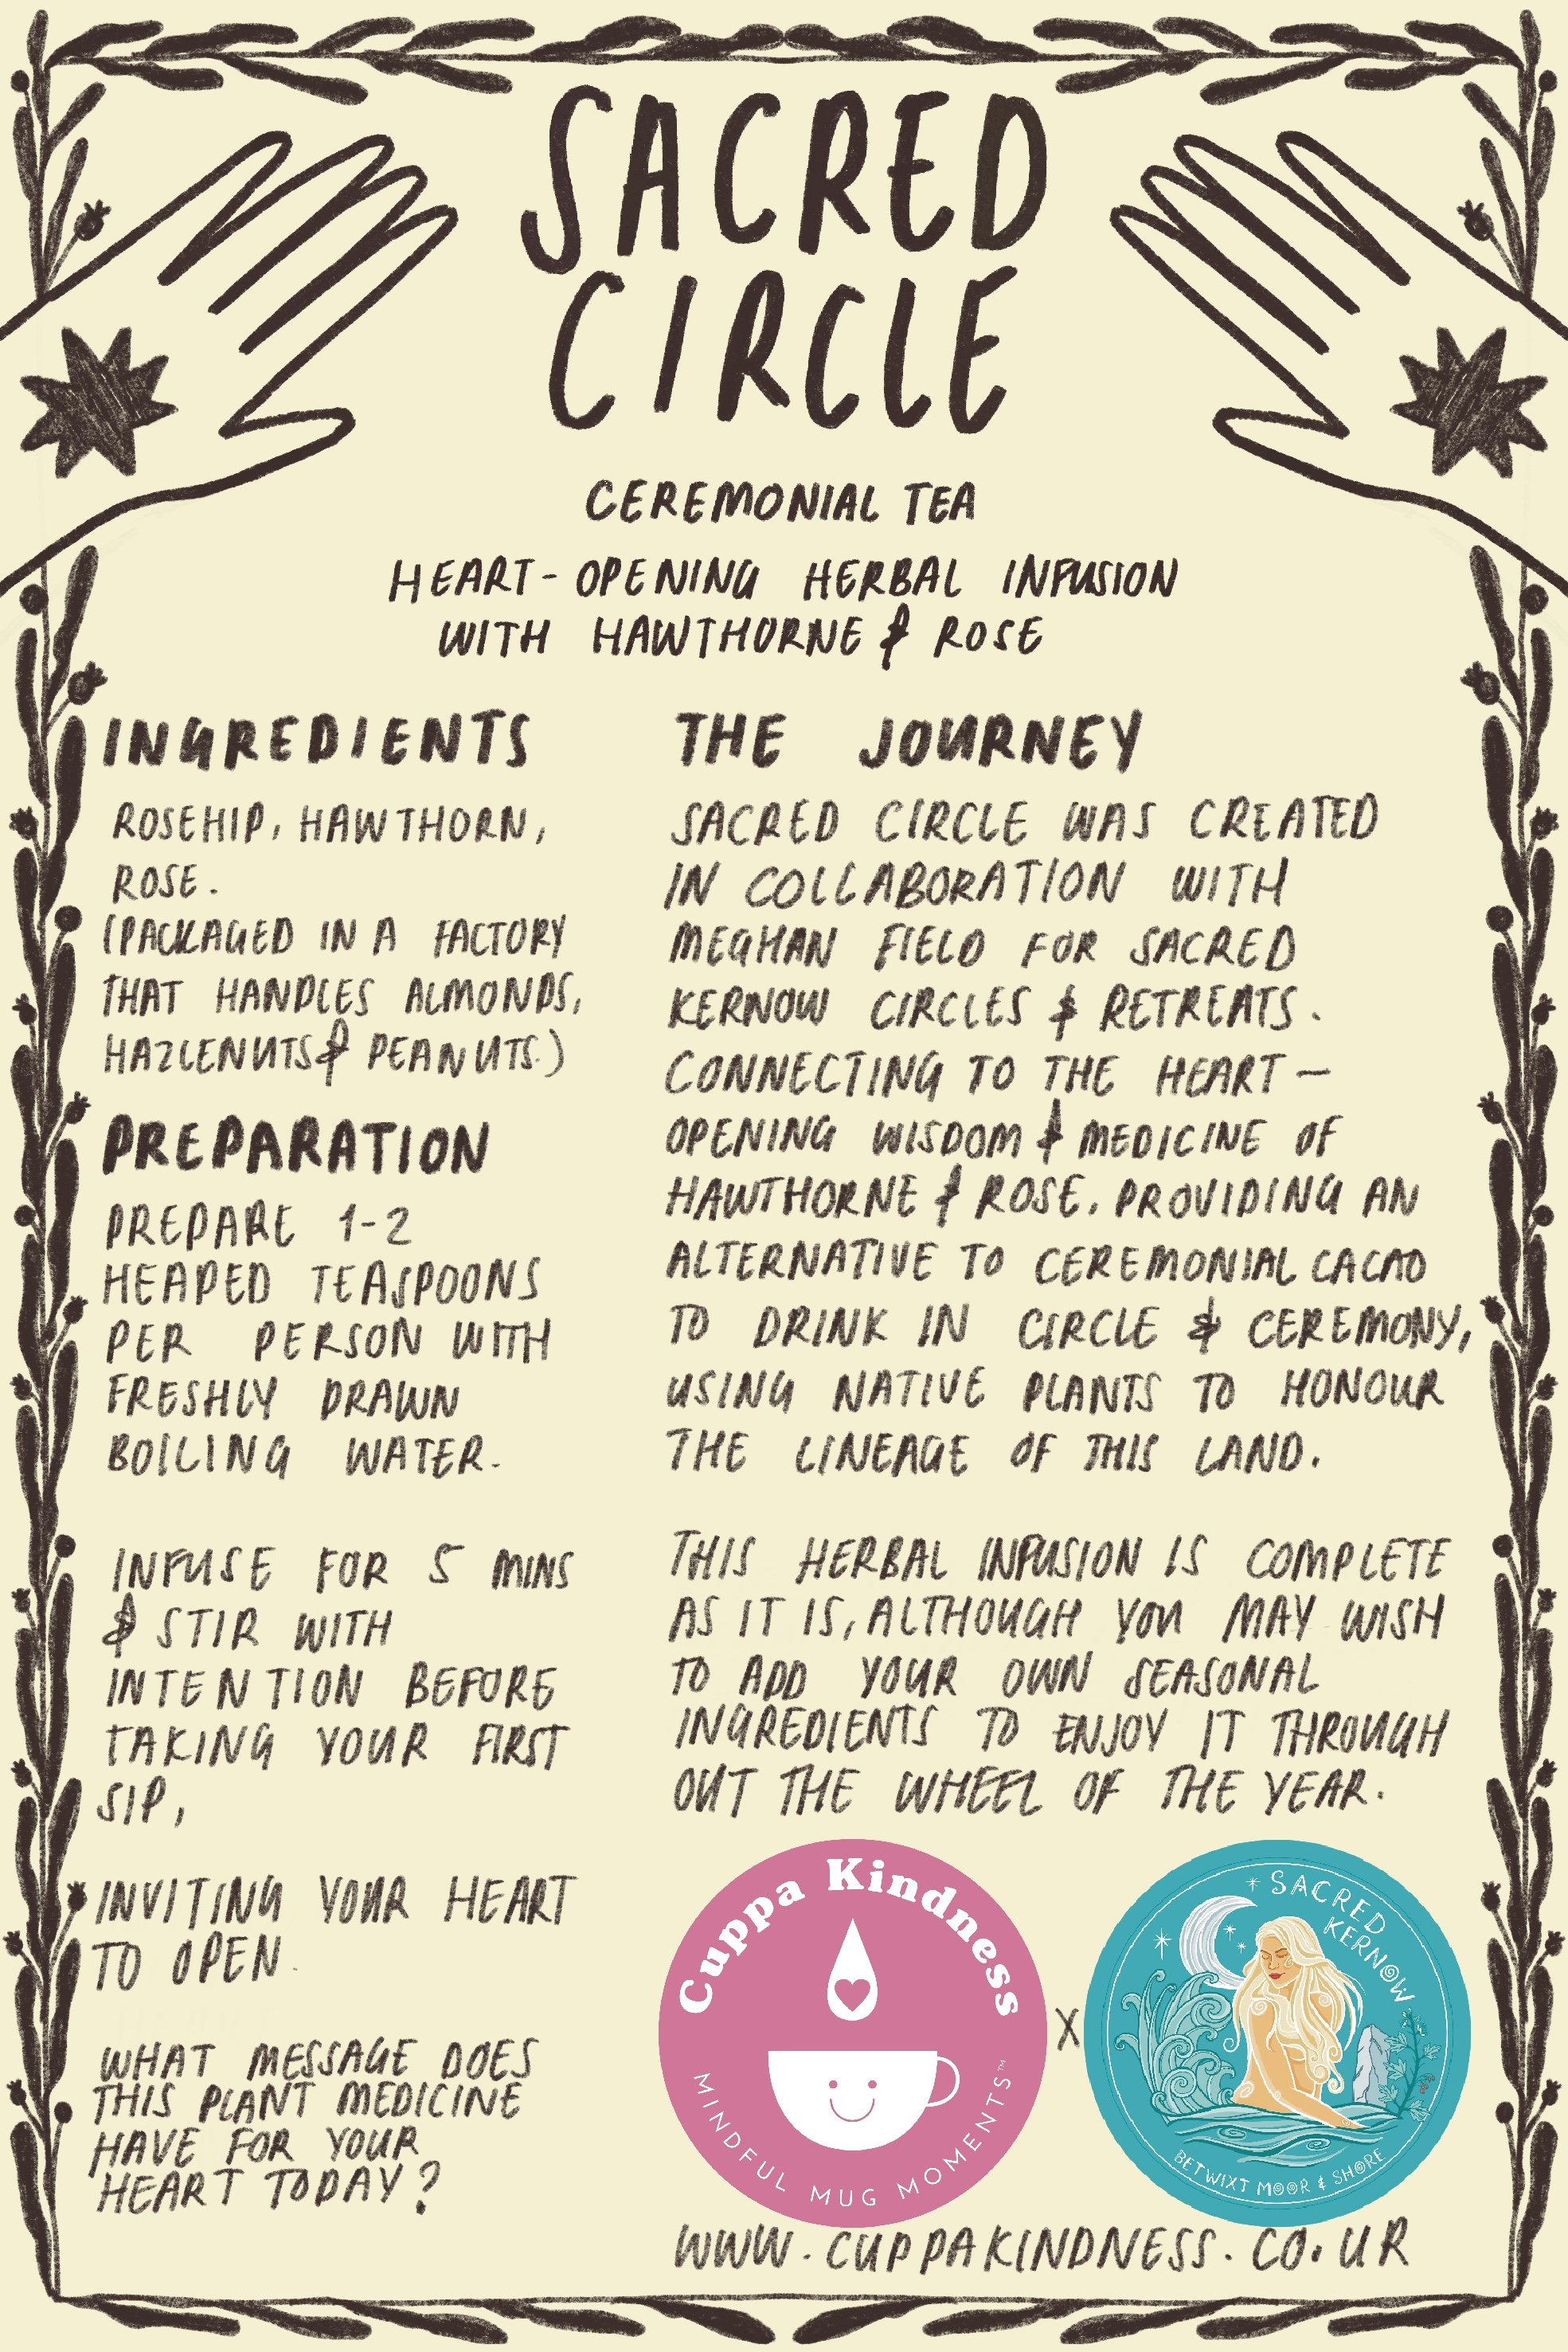 SACRED
CIRCLE
CEREMONIAL TEA
HEART-OPENING HERBAL INFUSION
WITH HAWTHORNE & ROSE
INGREDIENTS
ROSEHIP, HAWTHORN,
ROSE.
(PACKAGED IN A FACTORY
THAT HANDLES ALMONDS,
HAZLENUTS & PEANUTS.)
PREPARATION
PREPARE 1-2
HEAPED TEASPOONS
PER PERSON WITH
FRESHLY DRAWN
BOILING WATER.
INFUSE FOR 5 MINS
& STIR WITH
INTENTION BEFORE
TAKING YOUR FIRST
SIP,
INVITING YOUR HEART
TO OPEN.
WHAT MESSAGE DOES
THIS PLANT MEDICINE
HAVE FOR YOUR
HEART TODAY?
THE JOURNEY
SACRED CIRCLE WAS CREATED
IN COLLABORATION WITH
MEGHAN FIELD FOR SACRED
KERNOW CIRCLES & RETREATS.
CONNECTING TO THE HEART-
OPENING WISDOM & MEDICINE OF
HAWTHORNE & ROSE. PROVIDING AN
ALTERNATIVE TO CEREMONIAL CACAO
TO DRINK IN CIRCLE & CEREMONY,
USING NATIVE PLANTS TO HONOUR
THE LINEAGE OF THIS LAND.
THIS HERBAL INFUSION IS COMPLETE
AS IT IS, ALTHOUGH YOU MAY WISH
TO ADD YOUR OWN SEASONAL
INGREDIENTS TO ENJOY IT THROUGH
OUT THE WHEEL OF THE YEAR.
Cuppa Kindness
MINDFUL MUG MOMENTS™
X
SACRED
KERNOW
BETWIXT MOOR & SHORE
WWW.CUPPAKINDNESS.CO.UK